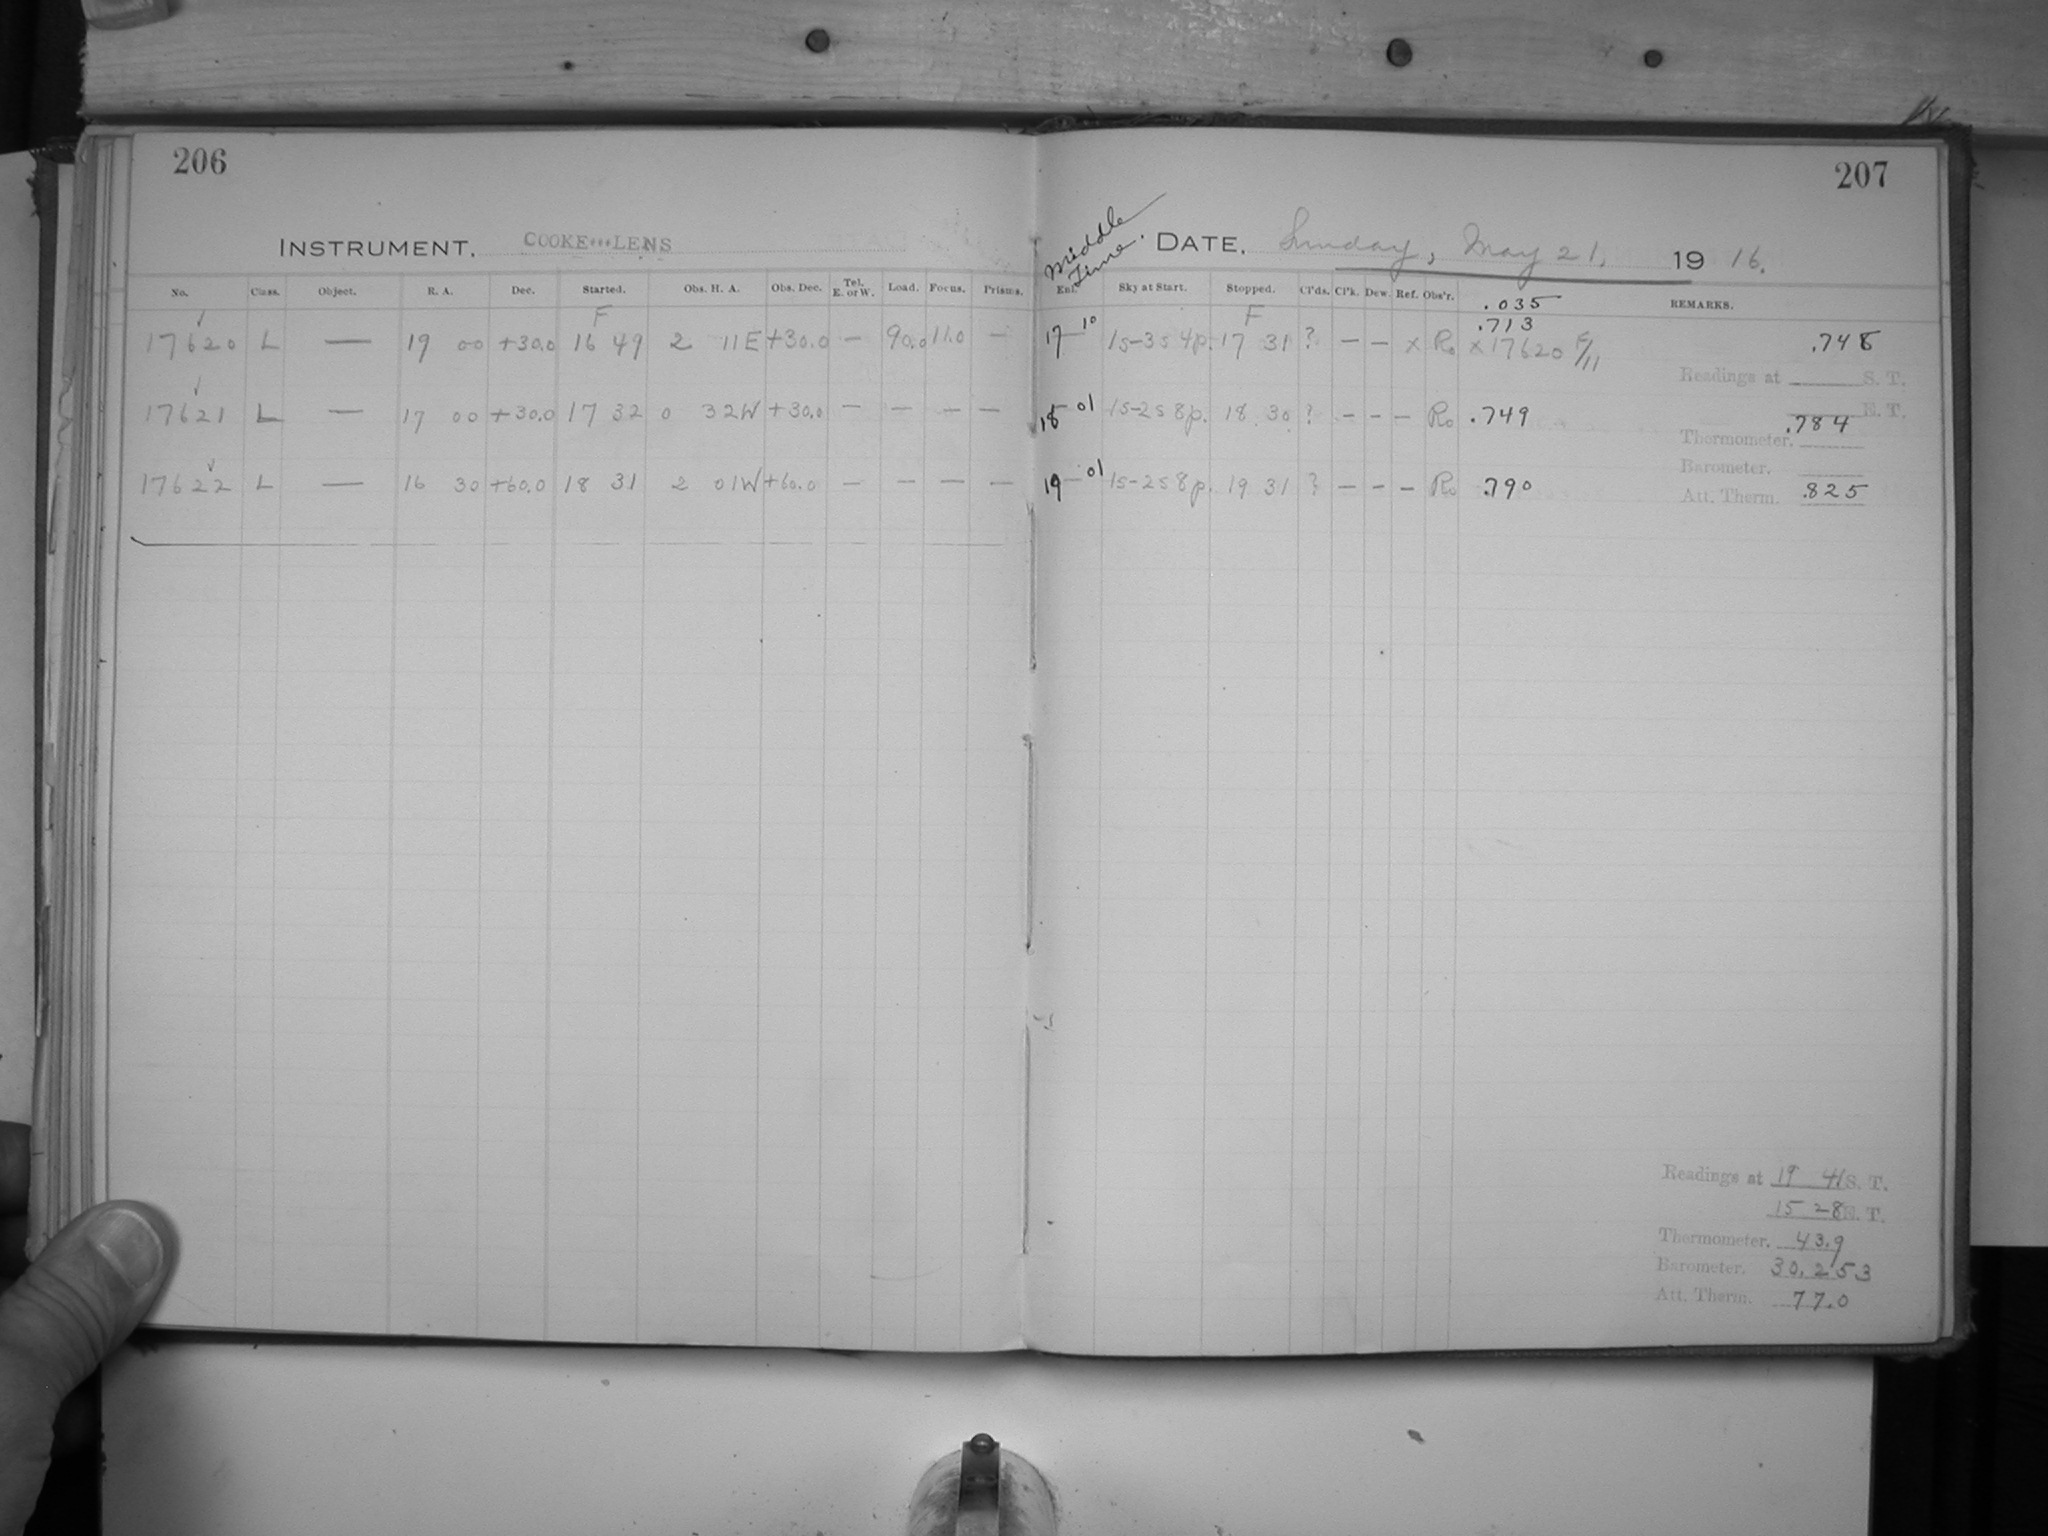 206
207
INSTRUMENT. COOKE LENS
Middle Time.
DATE. Sunday, May 21, 1916.
No. Class. Object. R. A. Dec. Started. Obs. H. A. Obs. Dec. Tel. E. or W. Load. Focus. Prisms. Enl. Sky at Start. Stopped. Cl'ds. Cl'k. Dew. Ref. Obs'r. REMARKS.
.035
F F .713
17620 L — 19 00 +30.0 16 49 2 11E +30.0 — 90.0 11.0 — 17 10 1s-3s 4p. 17 31 ? — — x Ro x17620 F/11 .748
Readings at S. T.
17621 L — 17 00 +30.0 17 32 0 32W +30.0 — — — — 18 01 1s-2s 8p. 18 30 ? — — — Ro .749 .784
E. T.
Thermometer.
Barometer.
17622 L — 16 30 +60.0 18 31 2 01W +60.0 — — — — 19 01 1s-2s 8p. 19 31 ? — — — Ro .790 .825
Att. Therm.
Readings at 19 41 S. T.
15 28 E. T.
Thermometer. 43.9
Barometer. 30.253
Att. Therm. 77.0